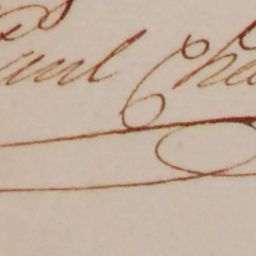 Paul Cha